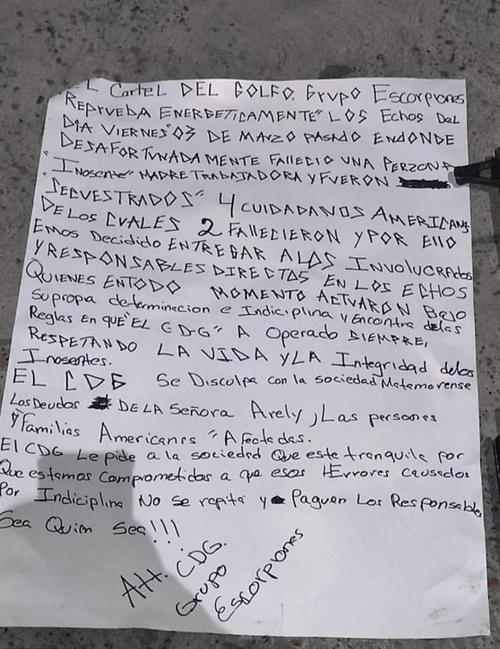 L Cartel DEL GOLFO. Grupo Escorpiones
REPRUEBA ENERGETICAMENTE" LOS Echos Del
DIA VIERNES" 03 DE MARZO PASADO ENDONDE
DESAFORTUNADAMENTE FALLECIO UNA PERZONA
"INosente" MADRE TRABAJADORA Y FUERON
"SECVESTRADOS" 4 CUIDADANOS AMERICANS
DE Los CUALES 2 FALLECIERON Y POR Ello
Emos Decidido ENTREGAR A LOS INVOLUCRAdos
Y RESPONSABLES DIRECTOS EN LOS ECHOS
QUIENES ENTODO MOMENTO ACTVARON BAJO
Su propa determinacion e Indiciplina y Encontra delas
Reglas En QUE "EL CDG" A Operado SIEMPRE,
RESPETANDO LA VIDA Y LA Integridad delos
Inosentes.
EL CDG Se Disculpa con la sociedad Matamorense
Los Deudos DE LA Señora Arely, Las personas
Y Familias Americanas "Afectadas.
El CDG Le pide a la sociedad Que este tranquila por
Que estamos comprometidos a que esos "Errores Causados
Por Indiciplina No se repita y Paguen Los Responsables
Sea Quien Sea!!!
Att. CDG.
Grupo
Escorpiones